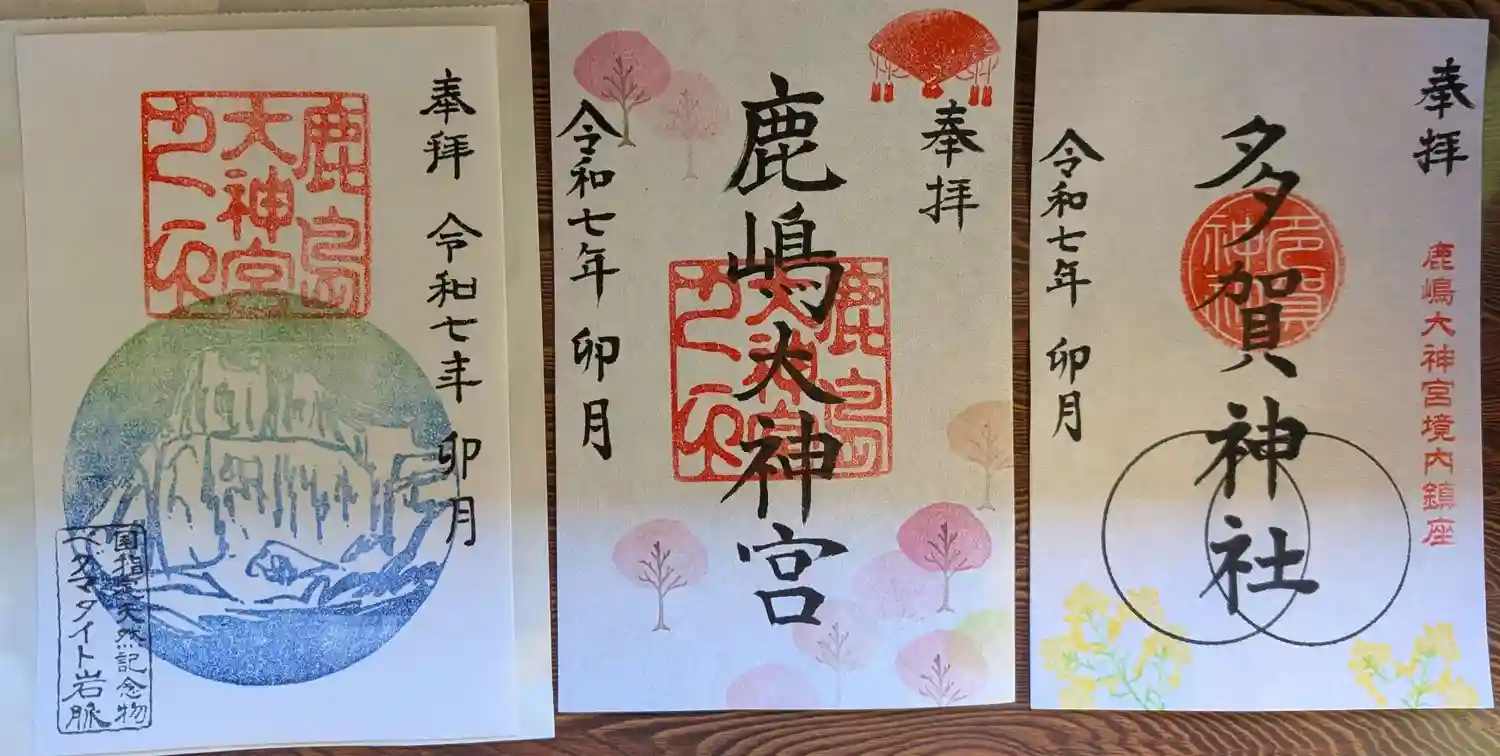 奉拝 令和七年 卯月
鹿島
大神宮
之印
国指定天然記念物
ペグマタイト岩脈
奉拝
鹿嶋大神宮
鹿島
大神宮
之印
令和七年 卯月
奉拝
鹿嶋大神宮境内鎮座
多賀神社
多賀
神社
令和七年 卯月